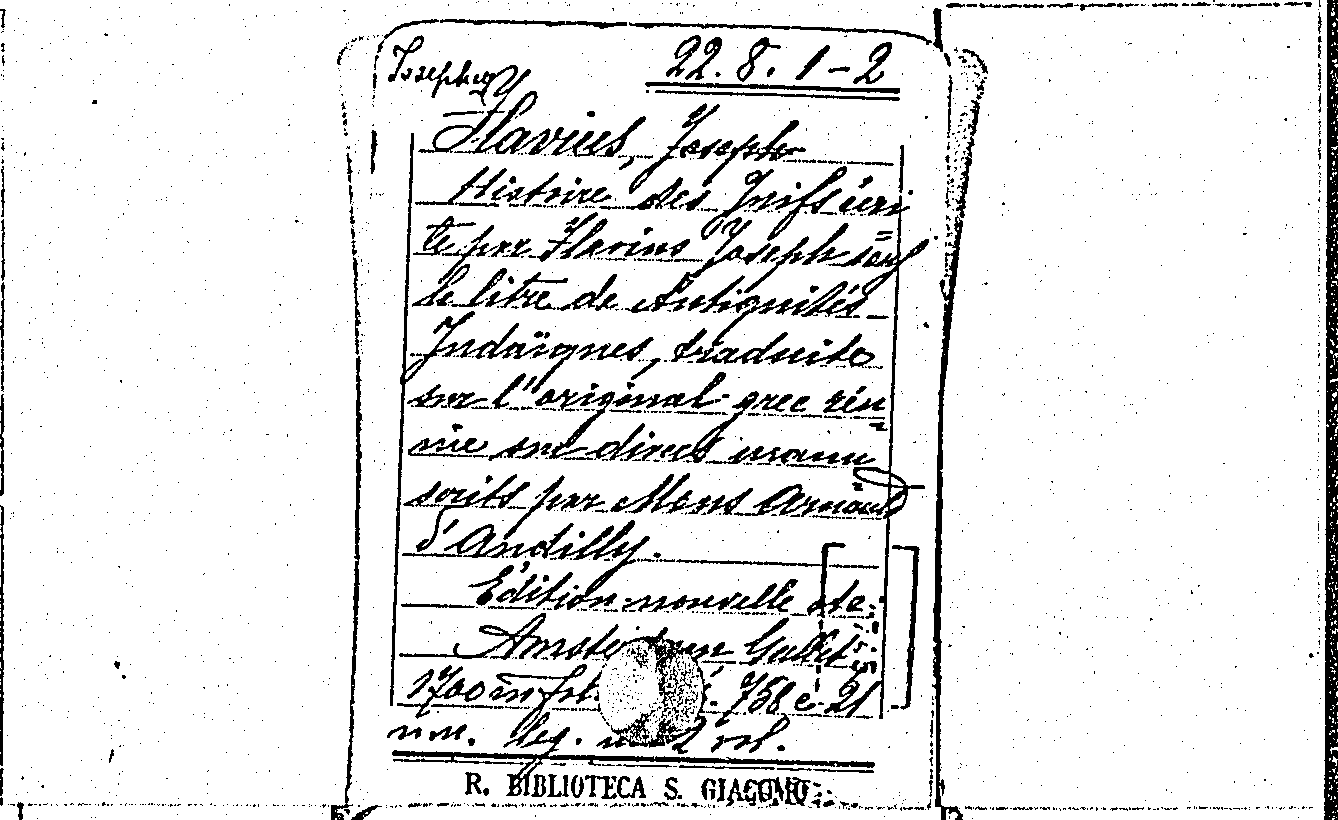 Josephus 22. 8. 1-2
Flavius, Joseph
Histoire des Juifs écri
te par Flavius Joseph sous
le titre de Antiquités
Judaïques, traduite
sur l'original grec réu
nie sur divers manu
scrits par Mons Arnauld
d'Andilly.
Édition nouvelle etc.
Amste Gallet
1700 in fol. 758 e 21
nn. leg. 2 vol.
R. BIBLIOTECA S. GIACOMO